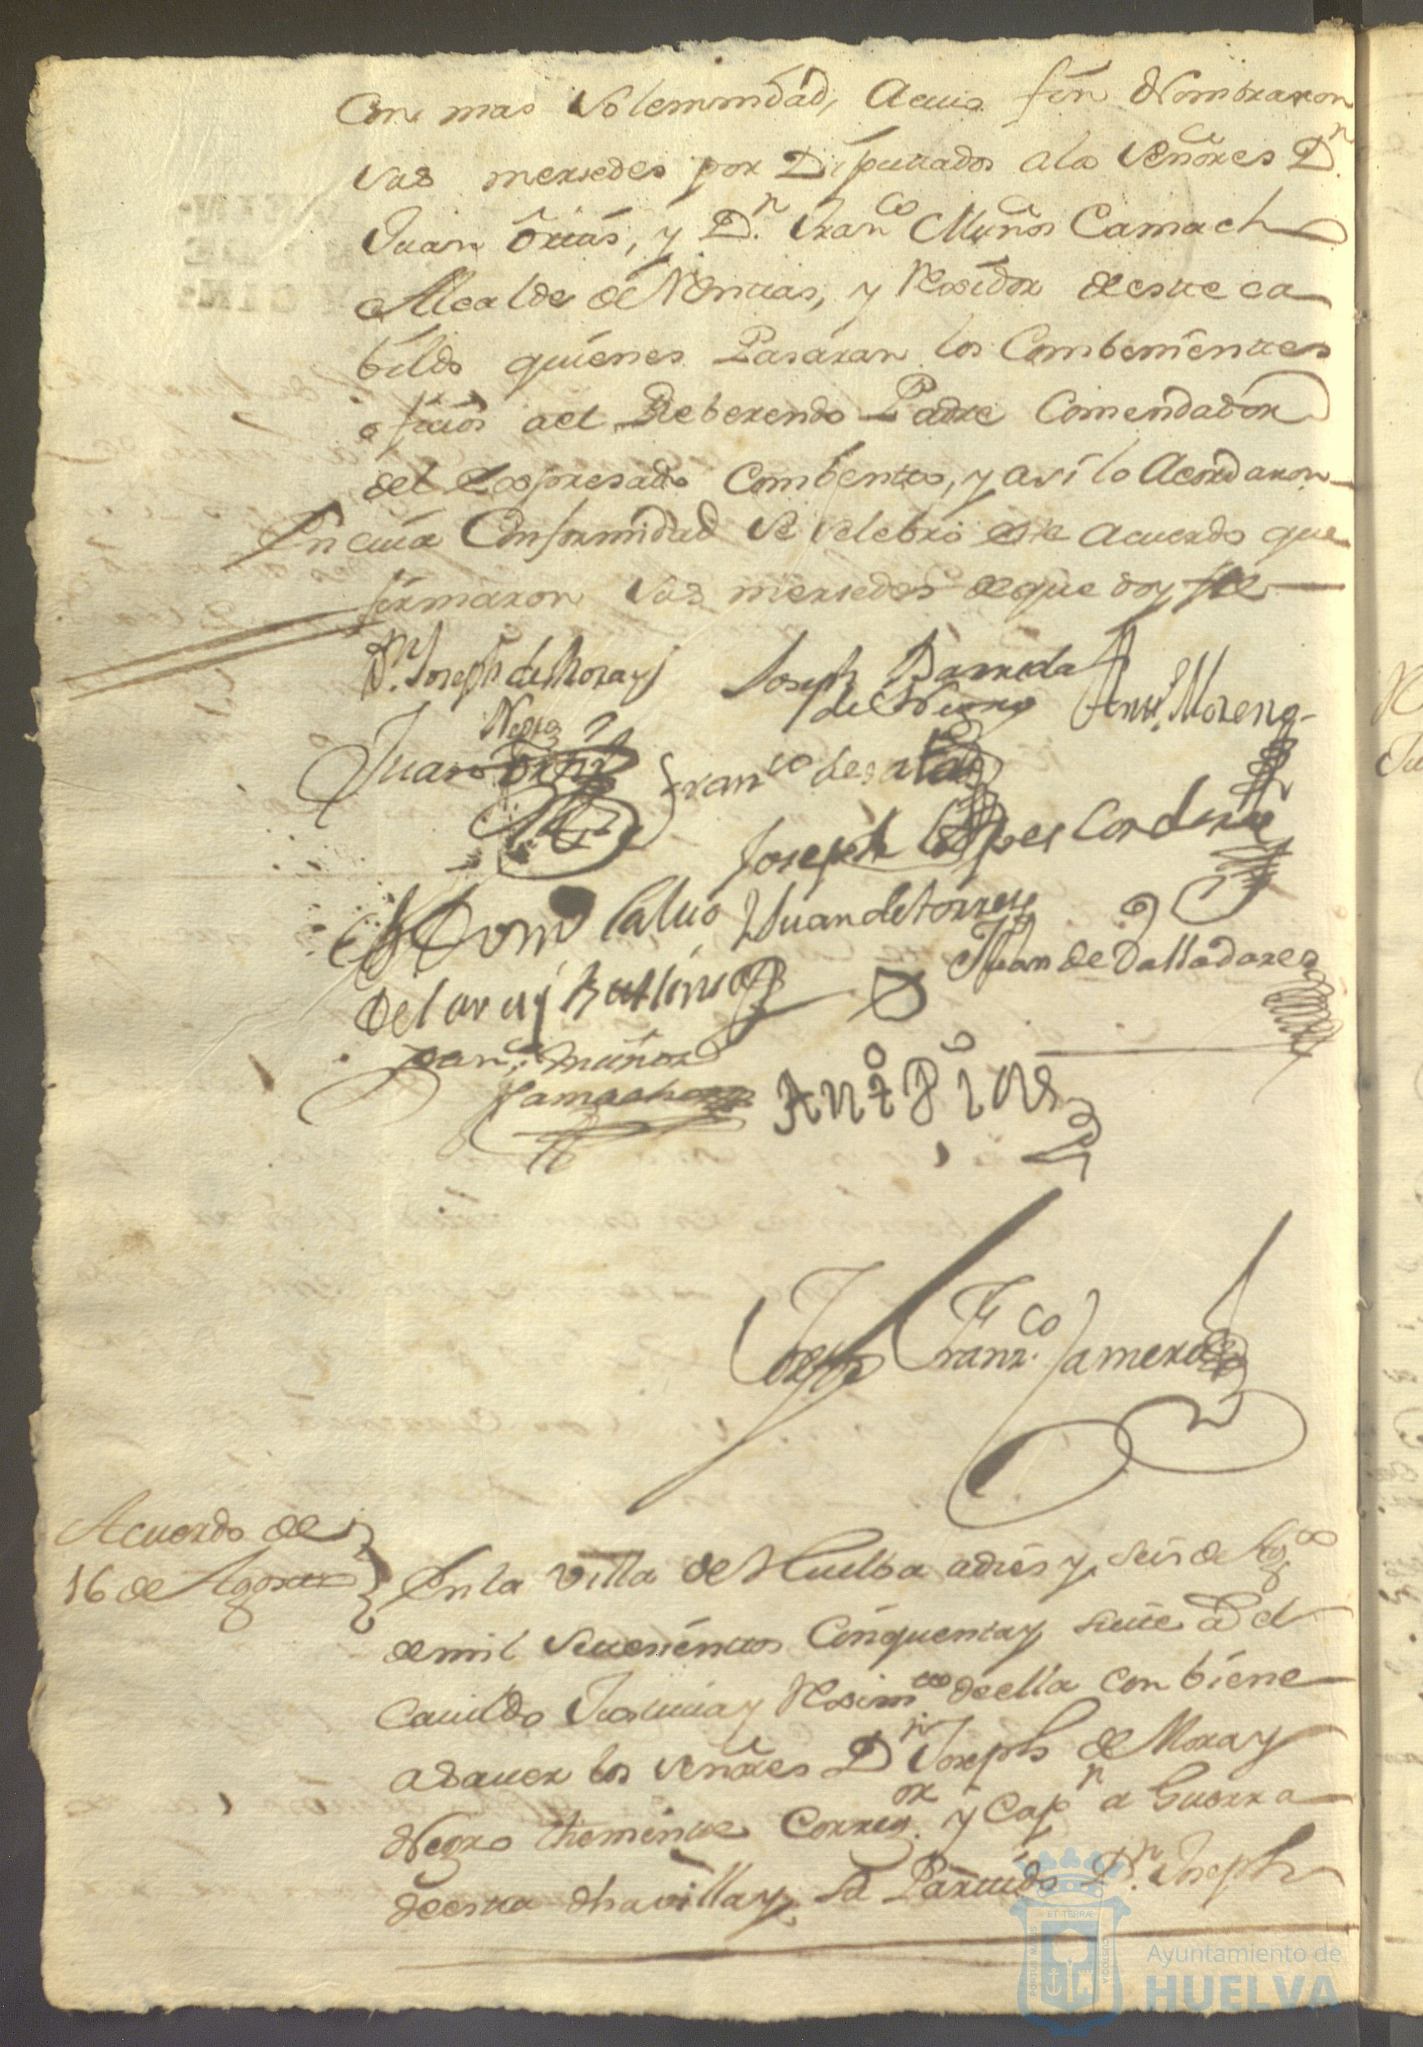 Con mas Solemnidad, Acuio fin Nombraron
Sus mersedes por Diputados a los Señores Dn.
Juan Ortiz, y Dn. Franco Muños Camacho
Alcalde de Noticias, y Rexidor de este ca
bildo quienes Pasaran los Combenientes
ofisios a el Reberendo Padre Comendador
del Expresado Combento, y asi lo Acordaron
En cuia Conformidad se selebro este acuerdo que
firmaron Sus mersedes de que doy fee
Dn. Joseph de Mora y
Negro
Joseph Barreda
de
Anto. Moreno
Juan Ortiz
Franco de
Joseph Lopes Cordero
Calvo
Juan de torres
Juan de Valladares
Franco Muñoz
Camacho
Joseph Franco. Romero
Acuerdo de
16 de Agosto
En la Villa de Huelba a dies y seis de Agto
de mil setesientos Cinquenta y siete a el
Cauildo Justicia y Reximto de ella conbiene
a sauer los señores Dn Joseph de Mora y
Negro theniente Corregor. y Capn a Guerra
de esta dha villa y su Partido Dn. Joseph
PORTUS MARIS
ET TERRAE
CUSTODIA
Ayuntamiento de
HUELVA